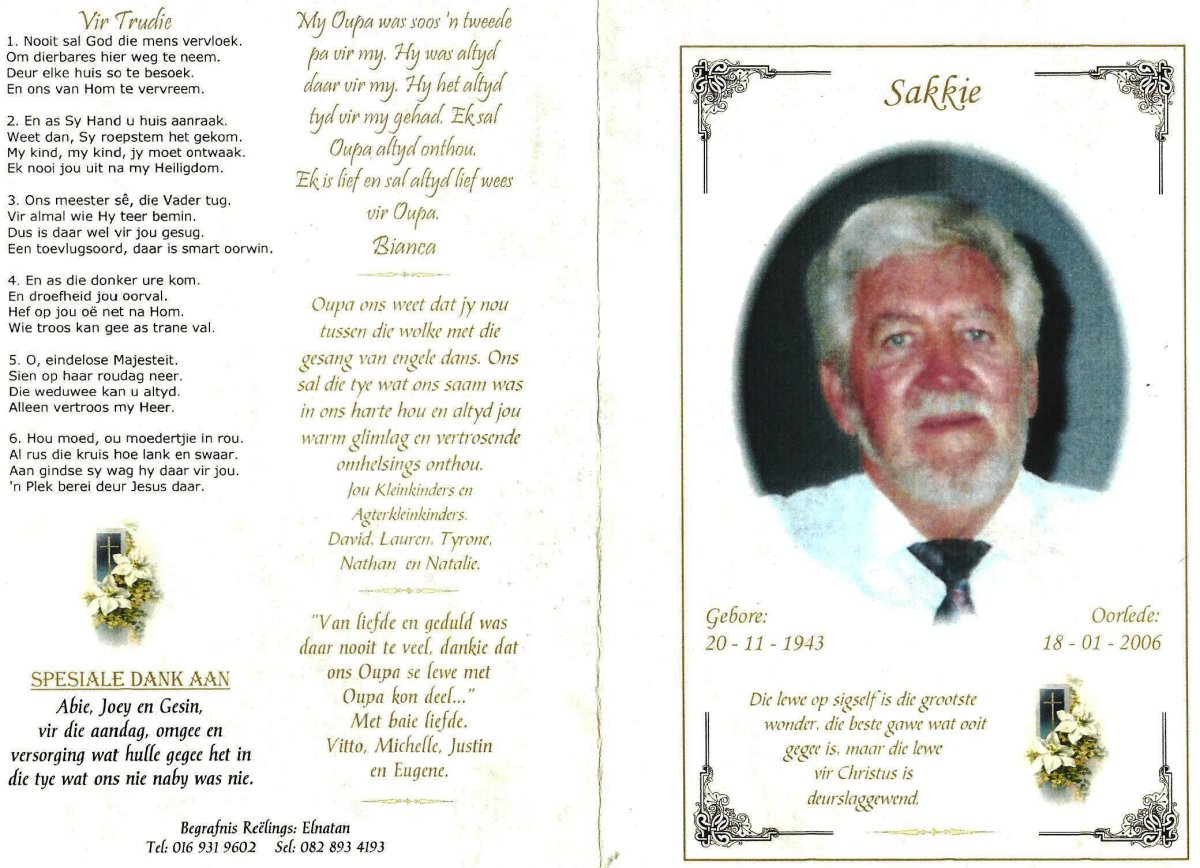 Vir Trudie
1. Nooit sal God die mens vervloek.
Om dierbares hier weg te neem.
Deur elke huis so te besoek.
En ons van Hom te vervreem.
2. En as Sy Hand u huis aanraak.
Weet dan, Sy roepstem het gekom.
My kind, my kind, jy moet ontwaak.
Ek nooi jou uit na my Heiligdom.
3. Ons meester sê, die Vader tug.
Vir almal wie Hy teer bemin.
Dus is daar wel vir jou gesug.
Een toevlugsoord, daar is smart oorwin.
4. En as die donker ure kom.
En droefheid jou oorval.
Hef op jou oë net na Hom.
Wie troos kan gee as trane val.
5. O, eindelose Majesteit.
Sien op haar roudag neer.
Die weduwee kan u altyd.
Alleen vertroos my Heer.
6. Hou moed, ou moedertjie in rou.
Al rus die kruis hoe lank en swaar.
Aan gindse sy wag hy daar vir jou.
'n Plek berei deur Jesus daar.
SPESIALE DANK AAN
Abie, Joey en Gesin,
vir die aandag, omgee en
versorging wat hulle gegee het in
die tye wat ons nie naby was nie.
My Oupa was soos 'n tweede
pa vir my. Hy was altyd
daar vir my. Hy het altyd
tyd vir my gehad. Ek sal
Oupa altyd onthou.
Ek is lief en sal altyd lief wees
vir Oupa.
Bianca
Oupa ons weet dat jy nou
tussen die wolke met die
gesang van engele dans. Ons
sal die tye wat ons saam was
in ons harte hou en altyd jou
warm glimlag en vertrosende
omhelsings onthou.
Jou Kleinkinders en
Agterkleinkinders.
David, Lauren, Tyrone,
Nathan en Natalie.
"Van liefde en geduld was
daar nooit te veel, dankie dat
ons Oupa se lewe met
Oupa kon deel..."
Met baie liefde.
Vitto, Michelle, Justin
en Eugene.
Begrafnis Reëlings: Elnatan
Tel: 016 931 9602 Sel: 082 893 4193
Sakkie
Gebore:
20 - 11 - 1943
Oorlede:
18 - 01 - 2006
Die lewe op sigself is die grootste
wonder, die beste gawe wat ooit
gegee is, maar die lewe
vir Christus is
deurslaggewend.